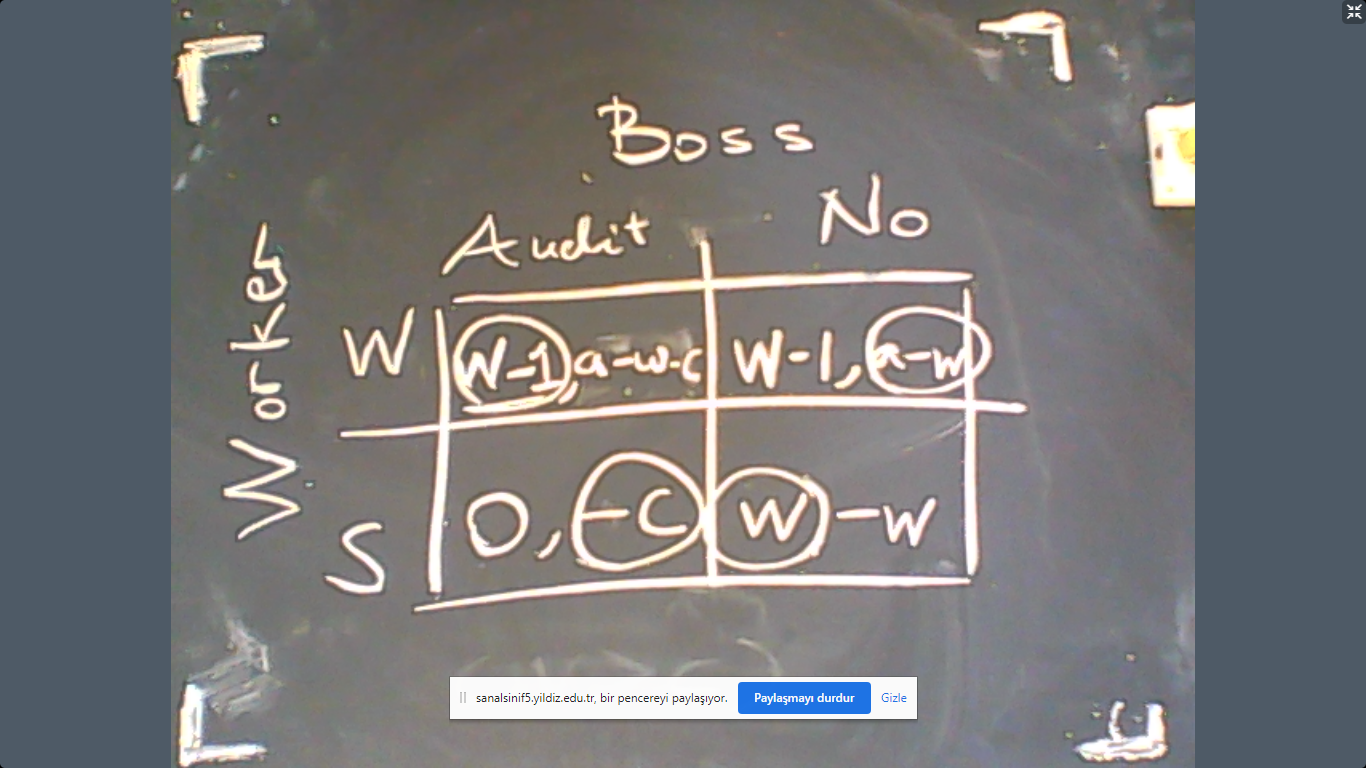 Boss
Audit No
Worker
W W-1, a-w-c W-1, a-w
S 0, -c W -w
sanalsinif5.yildiz.edu.tr, bir pencereyi paylaşıyor. Paylaşmayı durdur Gizle